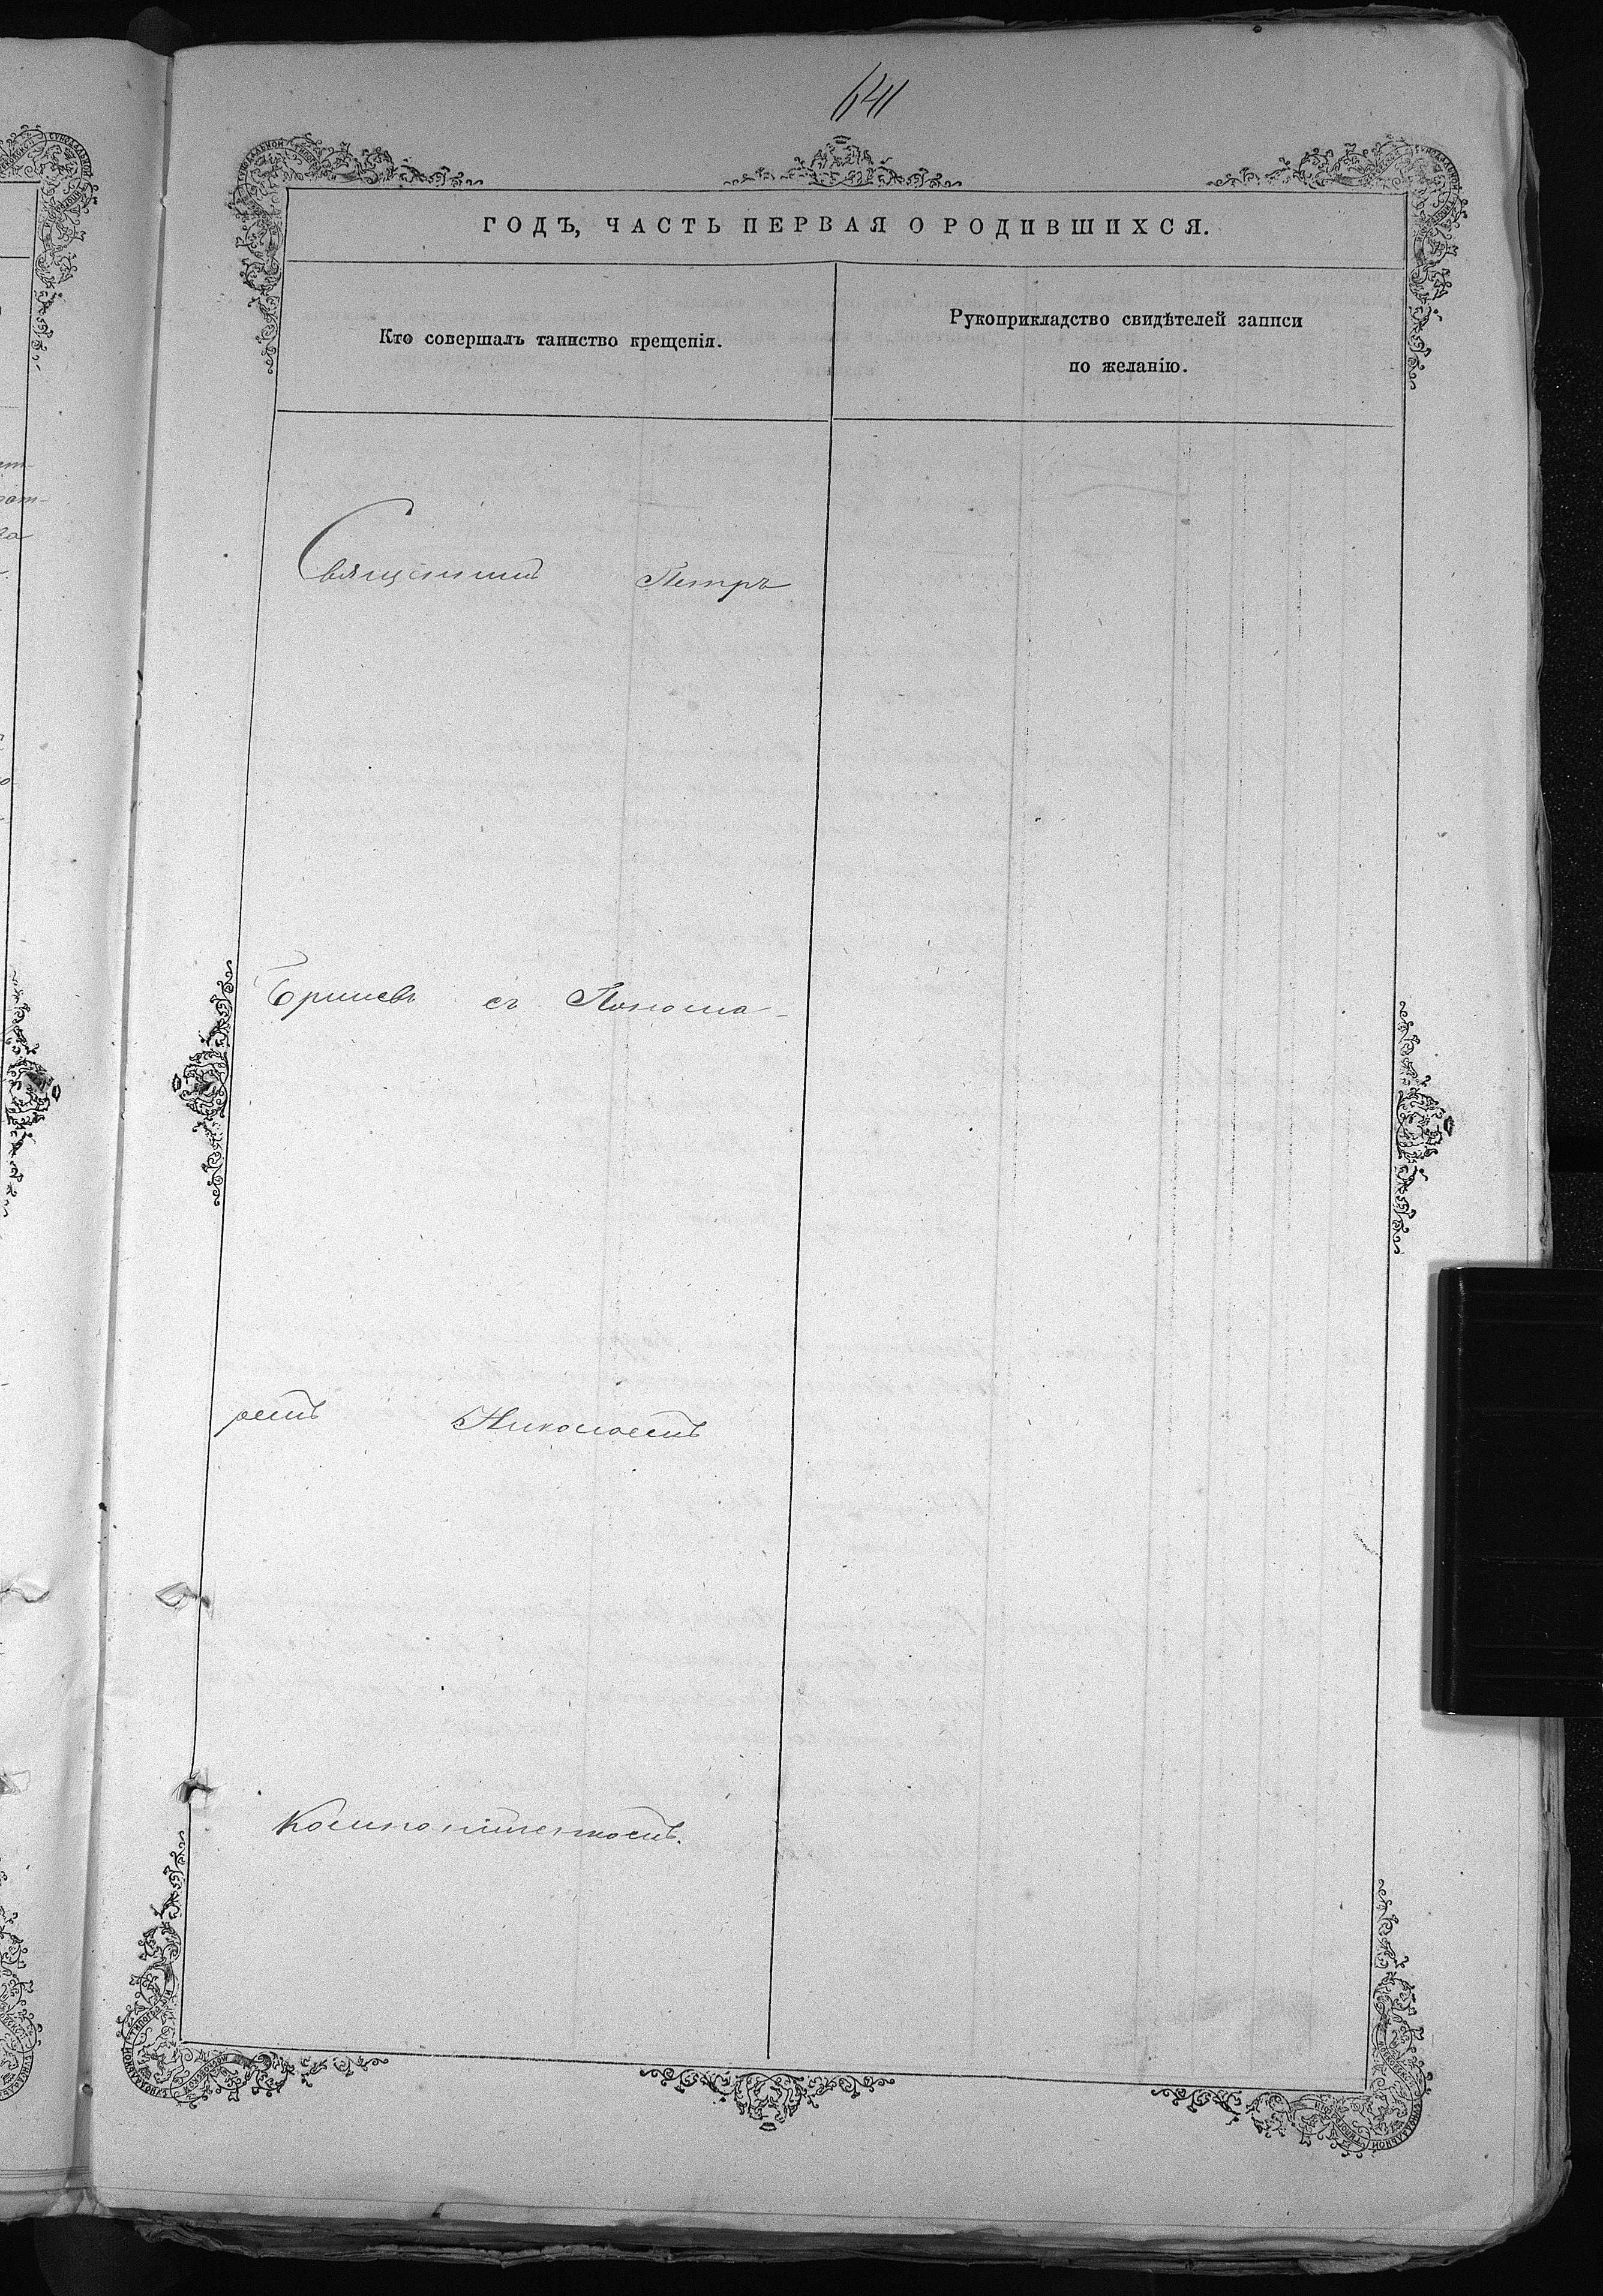 641
ГОДЪ, ЧАСТЬ ПЕРВАЯ О РОДИВШИХСЯ.
Кто совершалъ таинство крещенія.
Рукоприкладство свидѣтелей записи
по желанію.
Священникъ Петръ
съ Понома-
ремъ Николаемъ